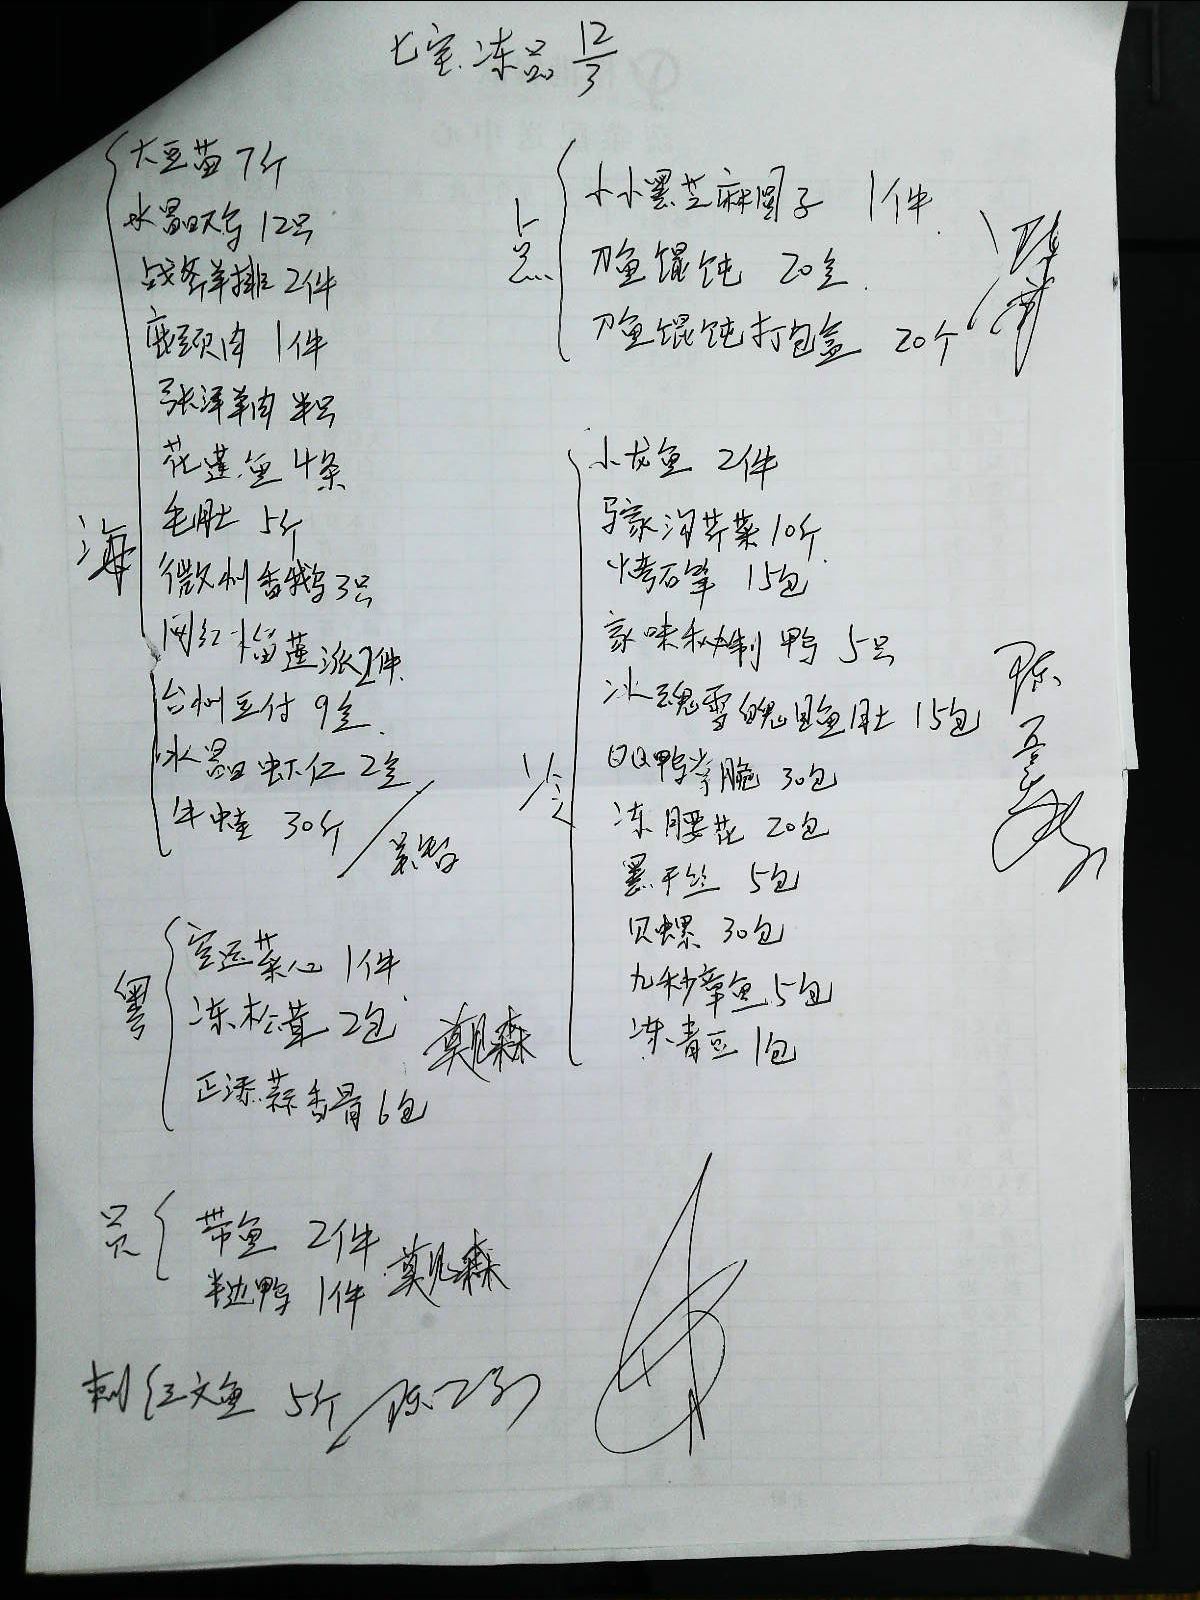 七宝冻品 12/3
大豆苗 7斤
水晶 12只
战斧羊排 2件
鹿颈肉 1件
张泽羊肉 半只
花莲鱼 4条
毛肚 5斤
微刺香鹅 3只
网红榴莲派 2件
台州豆付 9盒
水晶虾仁 2盒
牛蛙 30斤
海
空运菜心 1件
冻松茸 2包
正添蒜香骨 6包
粤
莫见森
带鱼 2件
半边鸭 1件
员
莫见森
刺 红文鱼 5斤
小小黑芝麻圆子 1件
刀鱼馄饨 20盒
刀鱼馄饨打包盒 20个
点
小龙鱼 2件
马家沟芹菜 10斤
烤石笋 15包
家味秘制鸭 5只
冰魂雪魄鱼肚 15包
QQ鸭掌脆 30包
冻腰花 20包
黑干丝 5包
贝螺 30包
九秒章鱼 5包
冻青豆 1包
冷